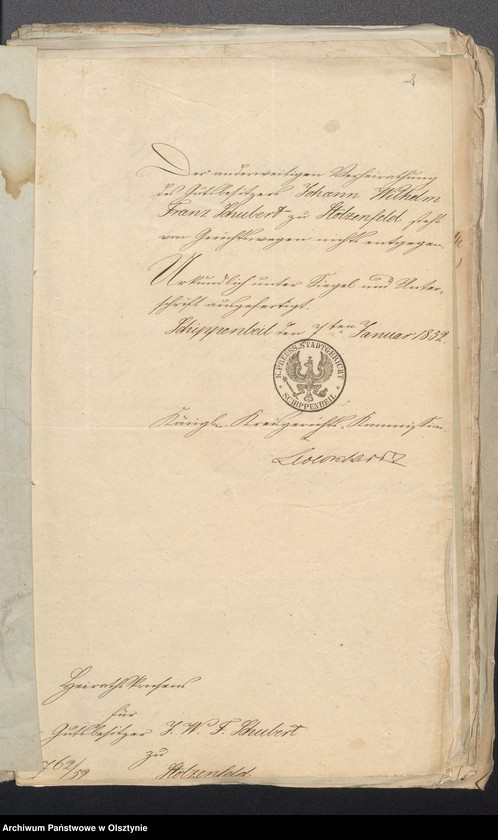 2
Der anderweitigen Verheirathung
des Gutsbesitzers Johann Wilhelm
Franz Schubert zu Stolzenfeld, steht
von Gerichtswegen nichts entgegen.
Urkundlich unter Siegel und Unter-
schrift ausgefertigt.
Schippenbeil den 7ten Januar 1852.
K. PREUSS. STADTGERICHT
* SCHIPPENBEIL *
Königl. Kreisgerichts-Kommission.
Heiraths Konsens
für
Gutsbesitzer J. W. F. Schubert
zu
Stolzenfeld
Archiwum Państwowe w Olsztynie